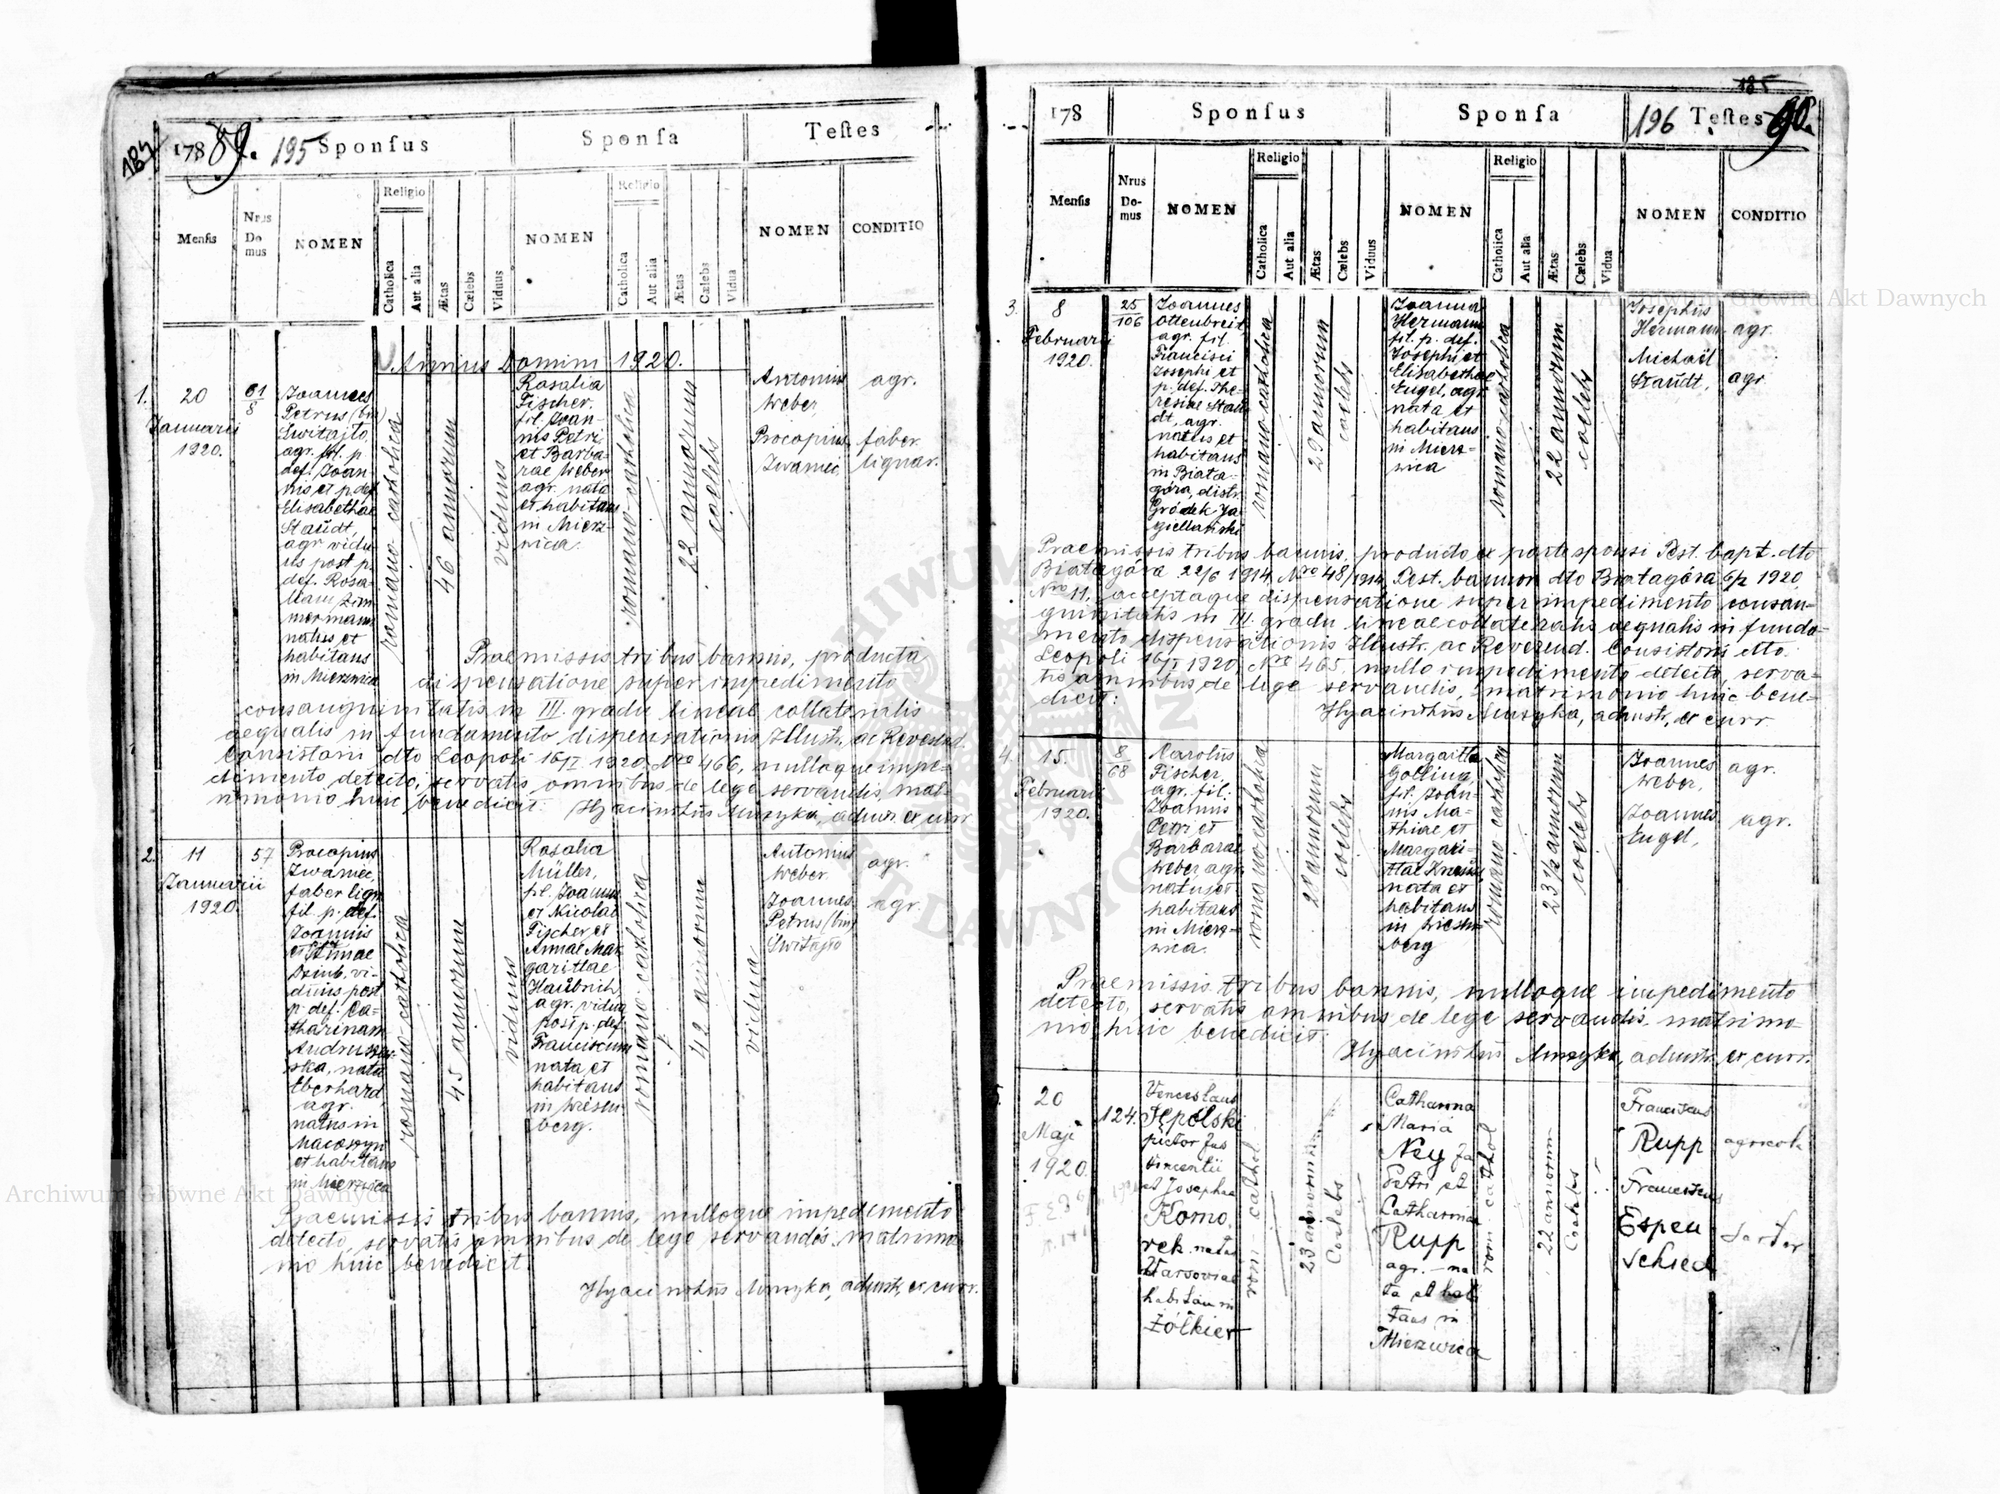 187
178 89. 195 Sponſus
Sponſa
Teſtes
Menſis
Nrus Do mus
NOMEN
Religio
Catholica
Aut alia
Ætas
Cælebs
Viduus
NOMEN
Religio
Catholica
Aut alia
Ætas
Cælebs
Vidua
NOMEN
CONDITIO
Annus Domini 1920.
1.
20
Januarii
1920.
61/8
Joannes
Petrus (bin)
Switajto,
agr. fil. p.
def. Joan-
nis et p. def.
Elisabethae
Staudt,
agr. vidu-
us post p.
def. Rosa-
liam Zim-
mermann
natus et
habitans
in Mierzwica
romano-catholica
46 annorum
viduus
Rosalia
Fischer,
fil. Joan-
nis Petri
et Barba-
rae Weber
agr. nata
et habitans
in Mierz-
wica.
romano-catholica
22 annorum
coelebs
Antonius
Weber,
agr.
Procopius
Iwaniec,
faber
lignar.
Praemissis tribus bannis, producta
dispensatione super impedimento
consanguinitatis in III. gradu lineae collateralis
aequalis in fundamento dispensationis Illustr. ac Reverend.
Consistorii dto Leopoli 16/I 1920. Nro 466, nulloque impe-
dimento detecto, servatis omnibus de lege servandis, mat-
rimonio huic benedicit: Hyacinthus Muszyka, admstr. et curr.
2.
11
Januarii
1920.
57
Procopius
Iwaniec,
faber lign.
fil. p. def.
Joannis
et Annae
Dziub, vi-
duus post
p. def. Ca-
tharinam
ska, nata
Eberhard,
agr.
natus in
et habitans
in Mierzwica
romano-catholica
45 annorum
viduus
Rosalia
Müller,
fil. Joannis
et Nicolai
Fischer et
Annae Mar-
garithae
Haubrich,
agr. vidua
post p. def.
Franciscum
nata et
habitans
in Wiesen-
berg.
romano-catholica
42 annorum
vidua
Antonius
Weber
agr.
Joannes
Petrus (bin)
Switajto
agr.
Praemissis tribus bannis, nulloque impedimento
detecto, servatis omnibus de lege servandis, matrimo-
nio huic benedicit.
Hyacinthus Muszyka, admstr. et curr.
185
178
Sponſus
Sponſa
196 Teſtes 90.
Menſis
Nrus Do- mus
NOMEN
Religio
Catholica
Aut alia
Ætas
Cælebs
Viduus
NOMEN
Religio
Catholica
Aut alia
Ætas
Cælebs
Vidua
NOMEN
CONDITIO
3.
8
Februarii
1920.
25/106
Joannes
Ottenbreit
agr. fil.
Francisci
Josephi et
p. def. The-
resiae Stau-
dt, agr.
natus et
habitans
in Biała-
góra, distr.
Gródek Ja-
gielloński
romano-catholica
29 annorum
coelebs
Joanna
Hermann
fil. p. def.
Josephi et
Elisabethae
Engel, agr.
nata et
habitans
in Mierz-
wica
romano-catholica
22 annorum
coelebs
Josephus
Hermann
agr.
Michaël
Staudt,
agr.
Praemissis tribus bannis, producto ex parte sponsi Test. bapt. dto
Białagóra 22/6 1914, Nro 48/1914, Test. bannor. dto Białagóra 6/2 1920
Nro 11, acceptaque dispensatione super impedimento consan-
guinitatis in III. gradu lineae collateralis aequalis in funda-
mento dispensationis Illustr. ac Reverend. Consistorii dto.
Leopoli 16/I 1920, Nro 465, nullo impedimento detecto, serva-
tis omnibus de lege servandis, matrimonio huic bene-
dicit:
Hyacinthus Muszyka, admstr. et curr.
4.
15.
Februarii
1920.
8/68
Karolus
Fischer,
agr. fil.
Joannis
Petri et
Barbarae
Weber agr.
natus et
habitans
in Mierz-
wica.
romano-catholica
annorum
coelebs
Margaritta
Golling,
fil. Joan-
nis Ma-
thiae et
Margari-
nata et
habitans
in Wiesen-
berg
romano-catholica
23 1/2 annorum
coelebs
Joannes
Weber,
agr.
Joannes
Engel,
agr.
Praemissis tribus bannis, nulloque impedimento
detecto, servatis omnibus de lege servandis, matrimo-
nio huic benedicit:
Hyacinthus Muszyka, admstr. et curr.
5.
20
Maji
1920.
124.
Venceslaus
pictor
Vincentii
et Josephae
Komo
rek natus
Varsoviae
habitan in
Żółkiew
rom-cathol
23 annorum
Coelebs
Catharina
Maria
Ney
Petri et
Catharina
Rupp
agr. - na
ta et habi
tans in
Mierzwica
rom-cathol
22 annorum
Coelebs
Franciscus
Rupp
agricola
Franciscus
Espen
schied
Sartor
Archiwum Główne Akt Dawnych
Archiwum Główne Akt Dawnych
ARCHIWUM
AKT DAWNYCH